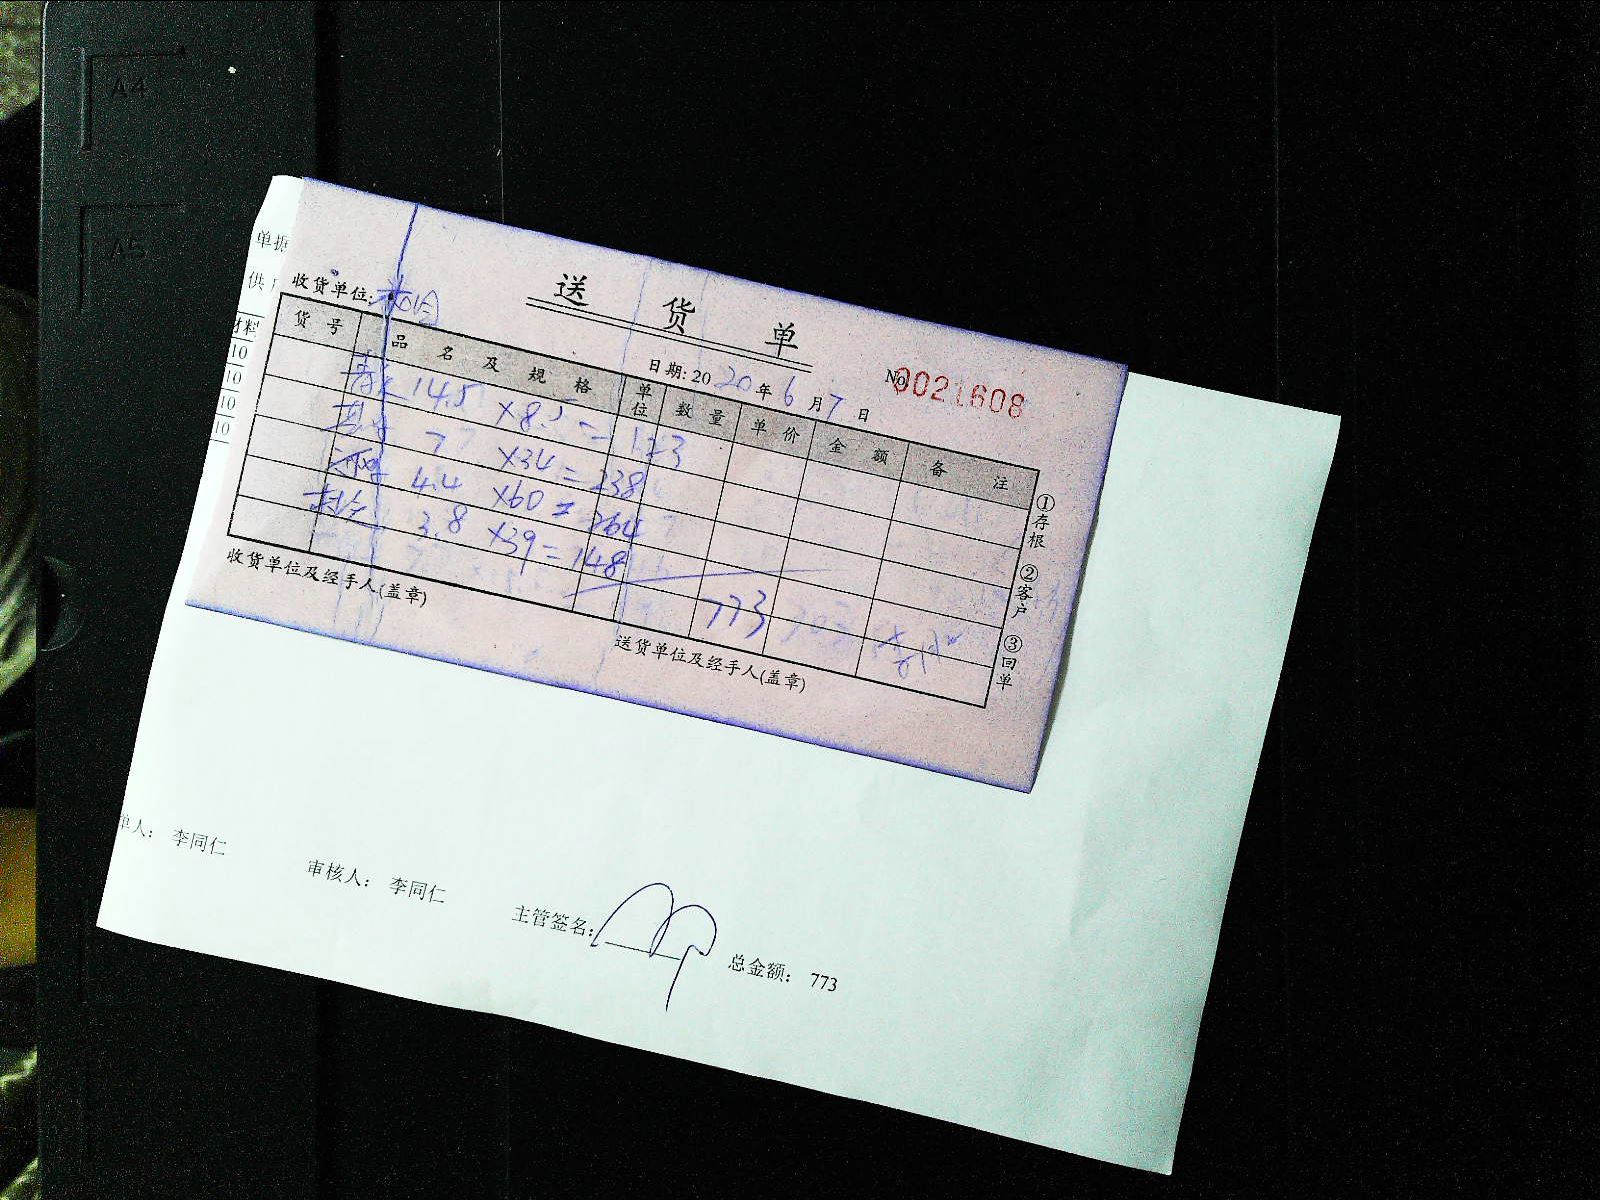 A4
A5
单据
供
材料
10
10
10
10
送货单
收货单位:
日期: 2020年6月7日
No 0021608
货号 品名及规格 单位 数量 单价 金额 备注
14.5 ×8.5= 123
7 ×34=238
4.4 ×60=264
3.8 ×39=148
773
①存根
②客户
③回单
收货单位及经手人(盖章)
送货单位及经手人(盖章)
单人: 李同仁
审核人: 李同仁
主管签名:
总金额: 773